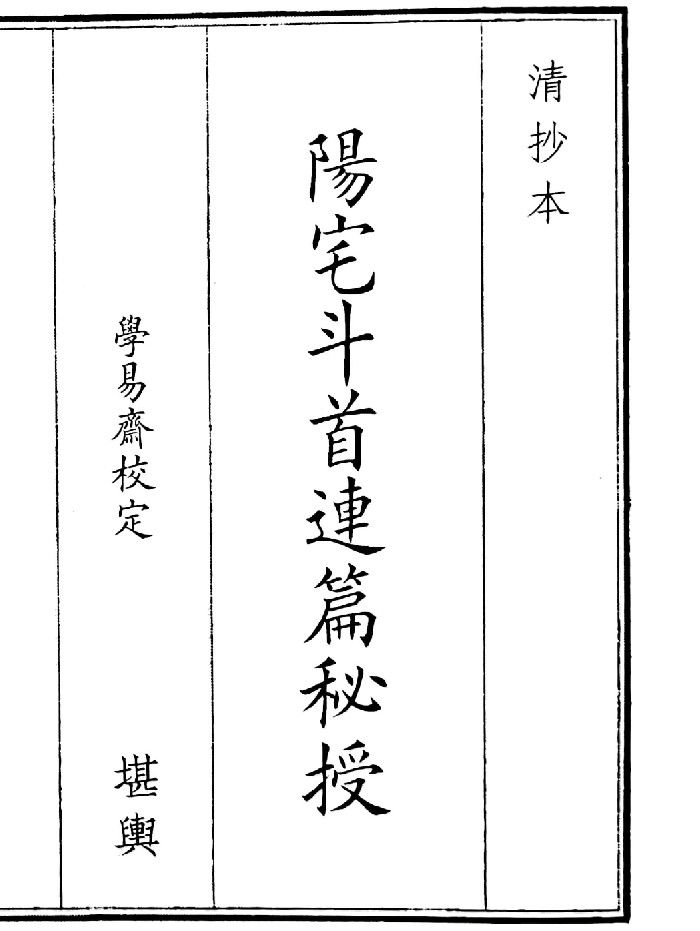 清抄本
陽宅斗首連篇秘授
學易齋校定
堪輿